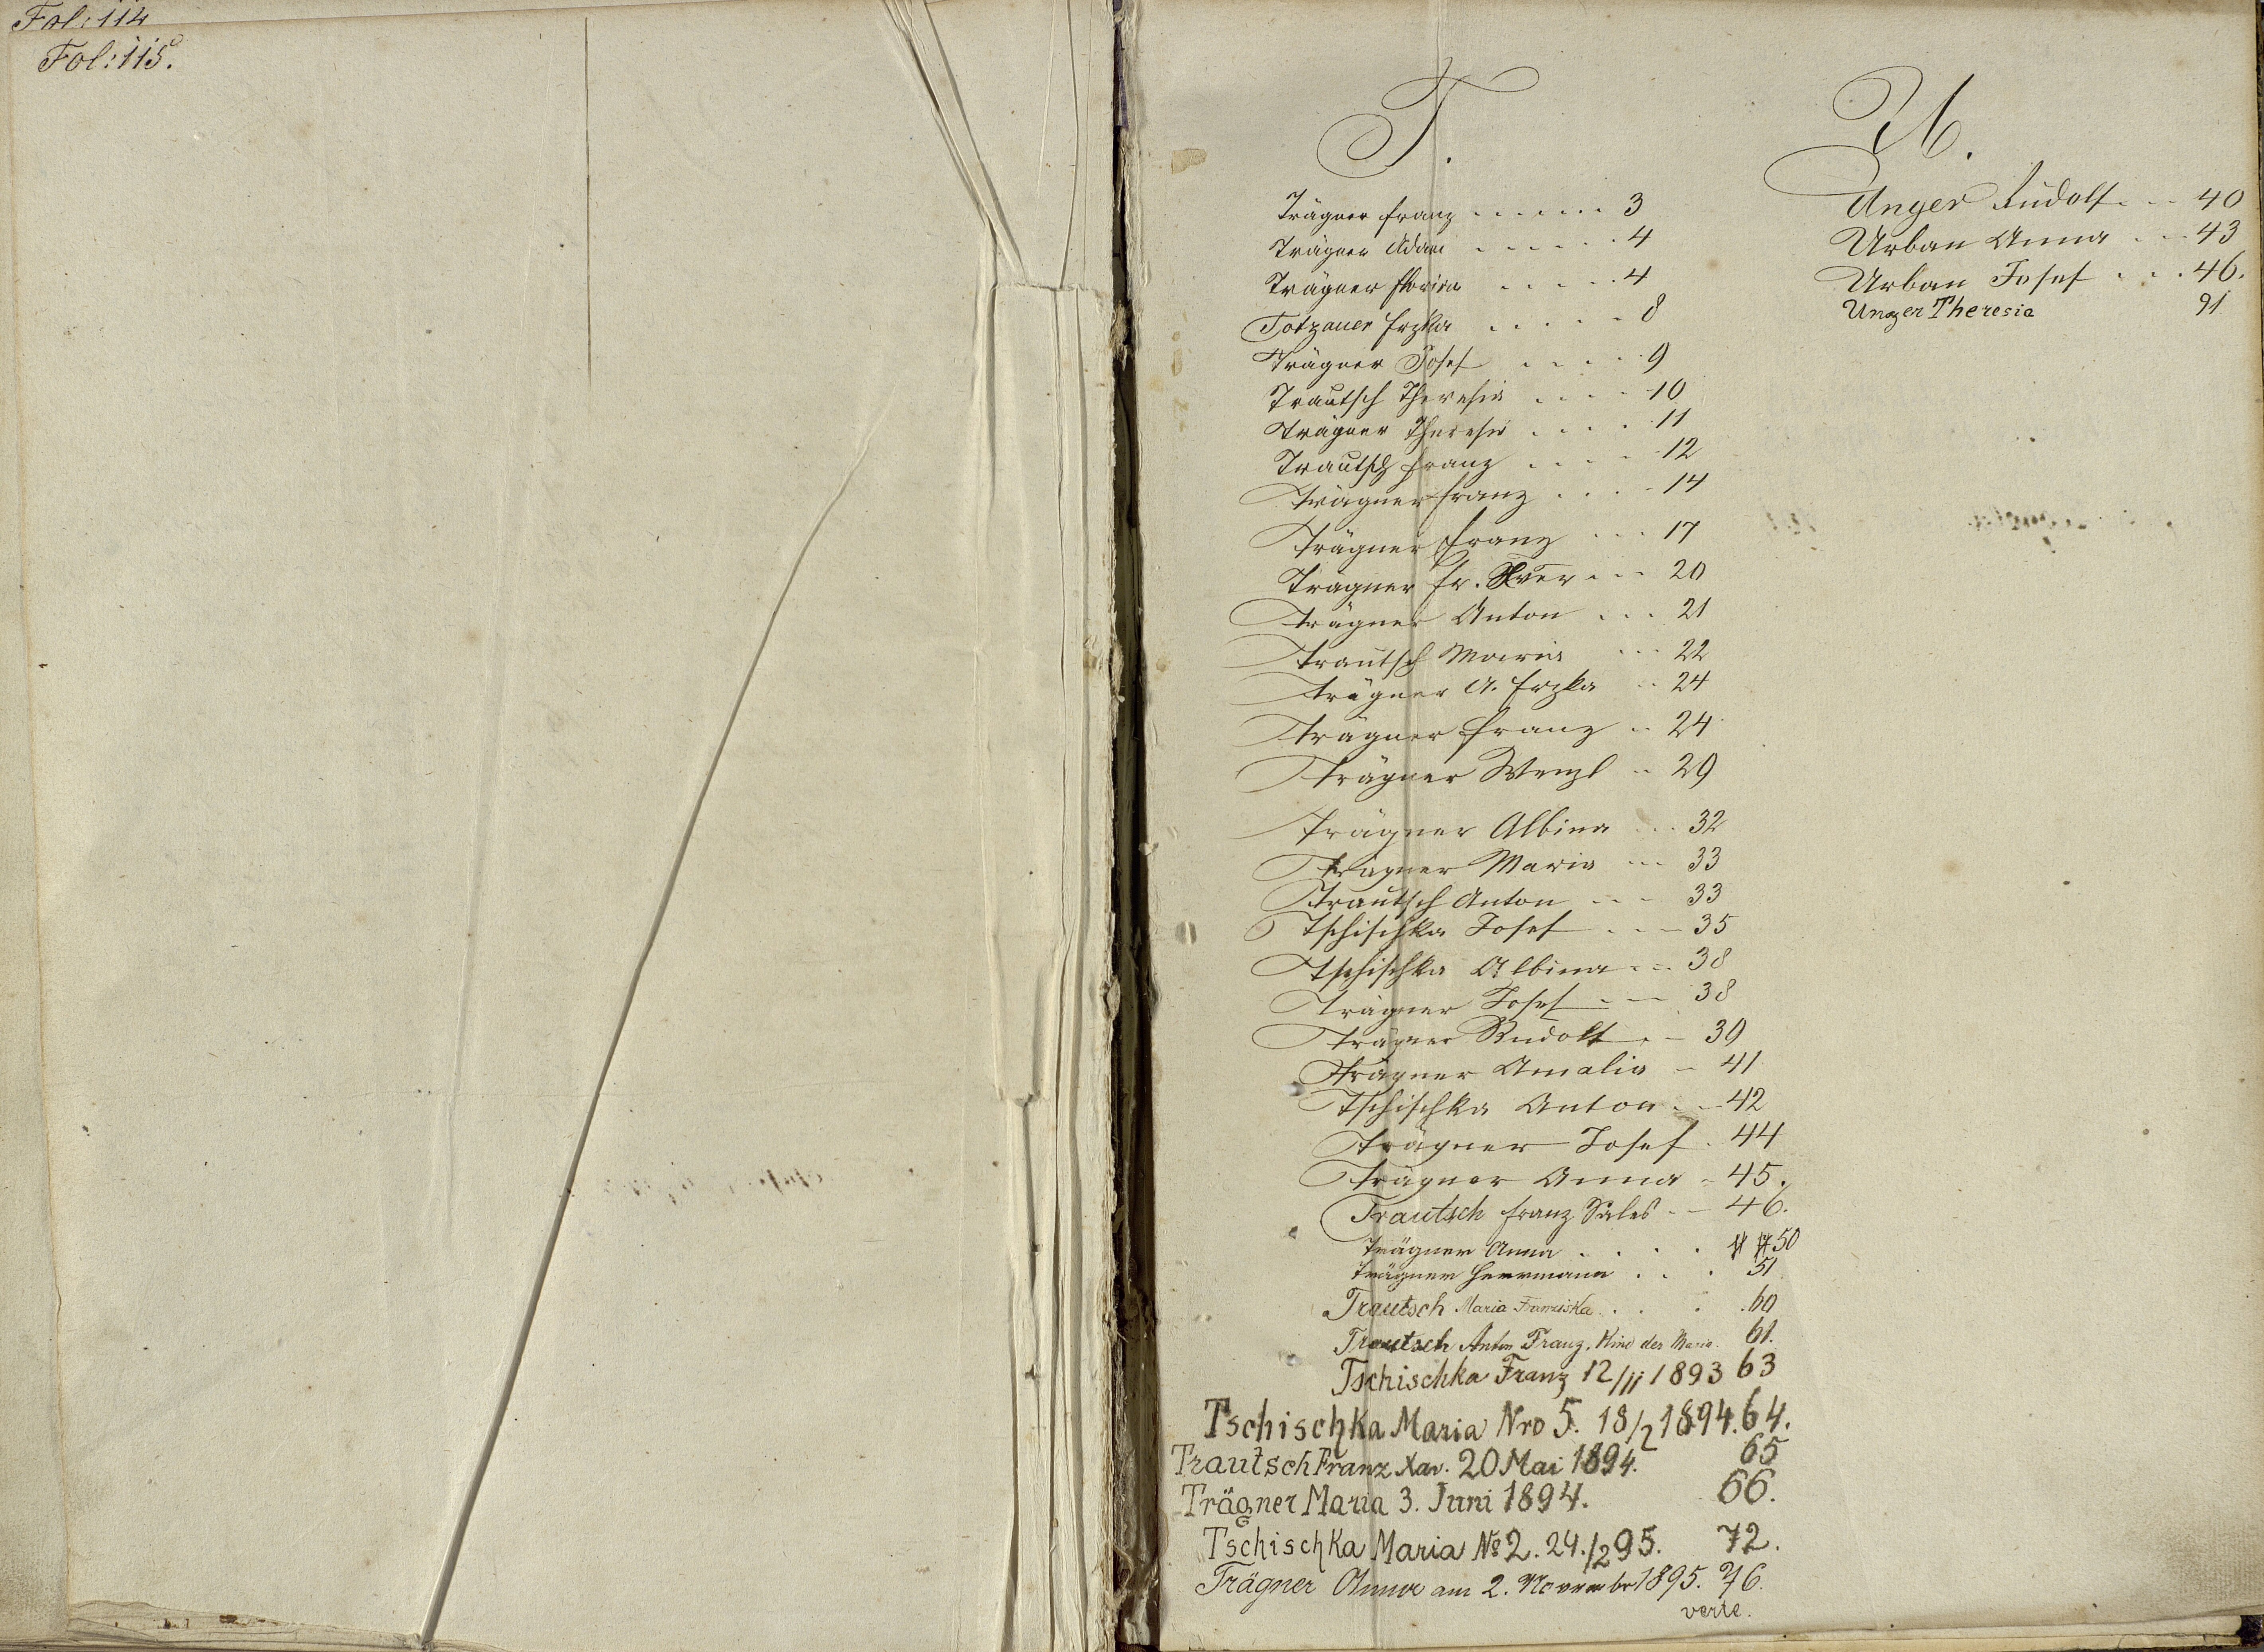 Fol: 114
Fol: 115.
T.
Trägner Franz . . . . . . . 3
Trägner Adam . . . . . . 4
Trägner . . . . . 4
Totzauer Frzka . . . . . 8
Trägner Josef . . . . . 9
Trautsch Theresia . . . . 10
Trägner Theresia . . . . 11
Trautsch Franz . . . . 12
Trägner Franz . . . . 14
Trägner Franz . . . 17
Trägner Fr. Xver . . . 20
Trägner Anton . . . 21
Trautsch Maria . . . 22
Trägner A. Frzka . . 24
Trägner Franz . . 24
Trägner Wenzl . . 29
Trägner Albina . . . 32
Trägner Maria . . . 33
Trautsch Anton . . . 33
Tschischka Josef . . . 35
Tschischka Albina . . . 38
Trägner Josef . . . 38
Trägner Rudolf . . 39
Trägner Amalia . 41
Tschischka Anton . . 42
Trägner Josef . 44
Trägner Anna . 45.
Trautsch Franz Sales . . 46.
Trägner Anna . . . . 50
Trägner Herrmann . . . 51
Trautsch Maria Franziska . . . . 60
Trautsch Anton Franz. Kind der Maria. 61.
Tschischka Franz 12/11 1893 63
Tschischka Maria Nro 5. 18/2 1894. 64.
Trautsch Franz Xav. 20 Mai 1894. 65
Trägner Maria 3. Juni 1894. 66.
Tschischka Maria No 2. 24./2 95. 72.
Trägner Anna am 2. November 1895. 76.
verte.
U.
Unger Rudolf . . . 40
Urban Anna . . . 43
Urban Josef . . . 46.
Unger Theresia 91